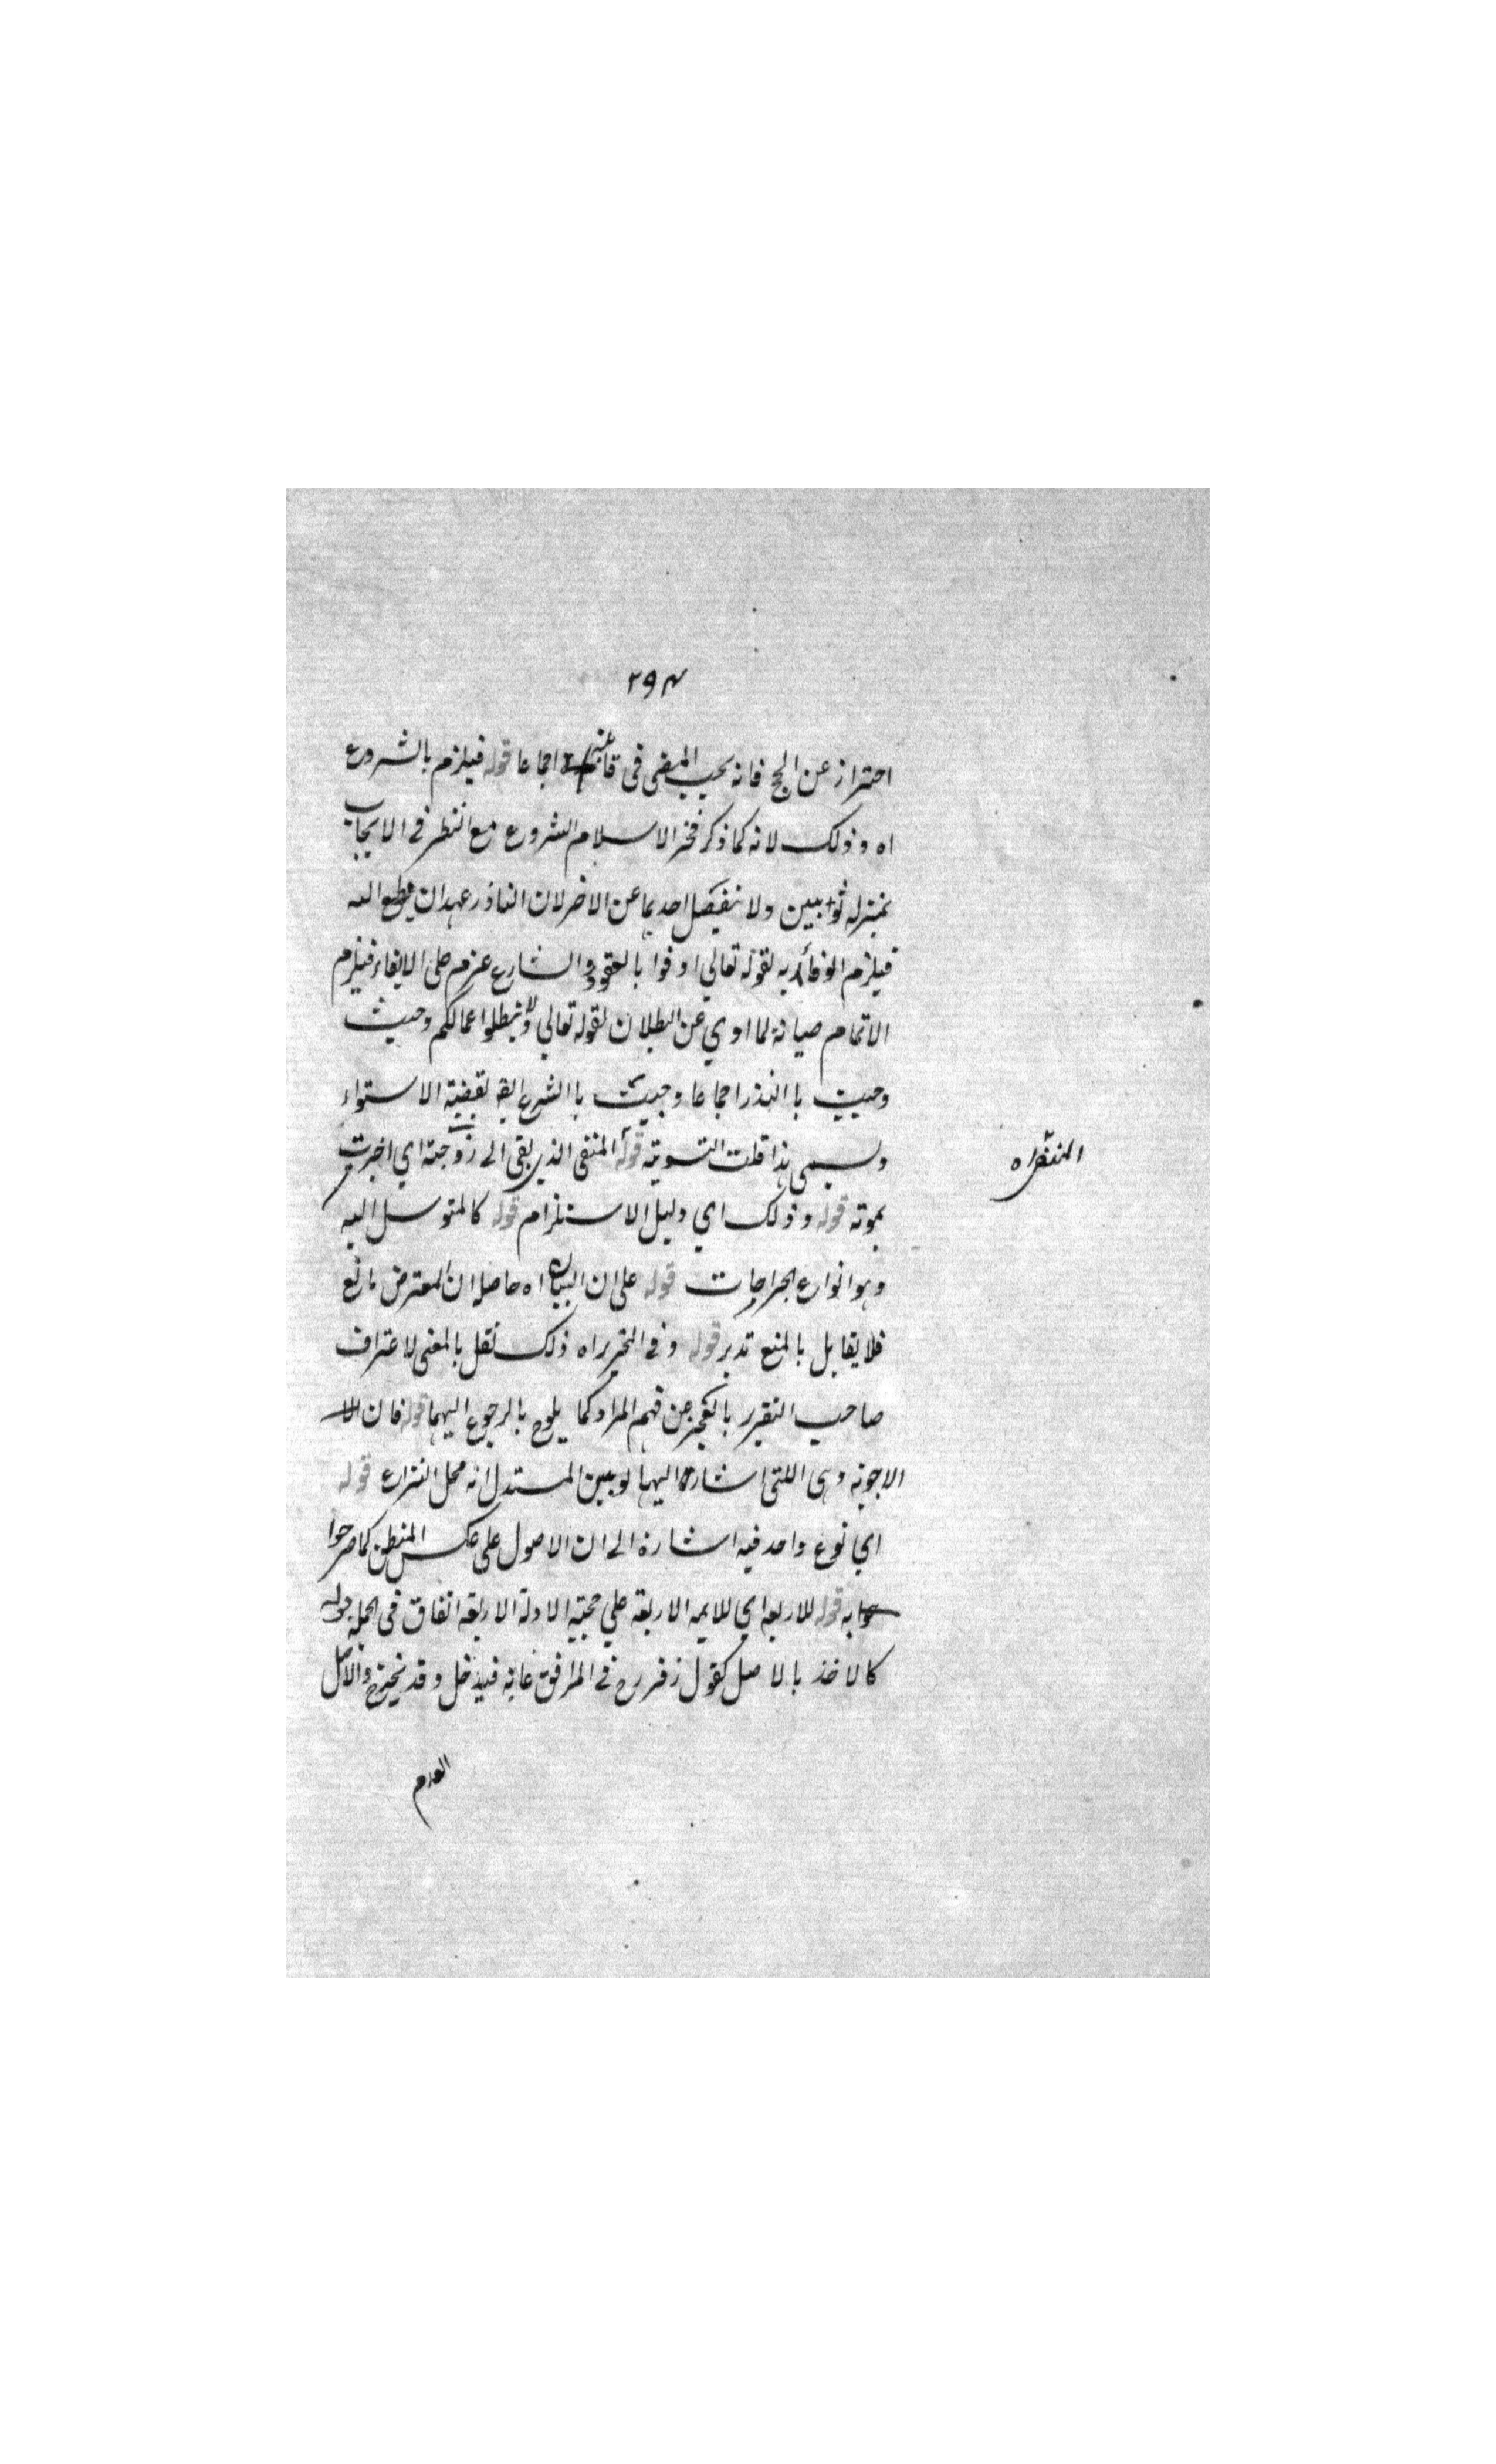 ٢٩٣
احتراز عن الحج فانه يجب المضى فى اجماعا قوله فيلزم بالشروع
اه وذلك لانه كما ذكر فخر الاسلام الشروع مع النظر فى الايجاب
بمنزلة ثوابين ولا ينفصل احديهما عن الاخر لان الناذر عهد ان يطيع الله
فيلزم الوفاء به لقوله تعالي اوفوا بالعقود والشارع عزم على الايفاء فيلزم
الاتمام صيانة لما ادي عن البطلان لقوله تعالي ولا تبطلوا اعمالكم وحيث
وجبت با النذر اجماعا وجبت با الشرع لقضية الاستواء
ويسمى هذا قلت التسوية قوله المنفى الذي بقى الى زوجته اي اخبرت
المنتظراه
بموته قوله وذلك اي دليل الاستلزام قوله كالمتوسل اليه
وهو انواع الجراحات قوله على ان البيان اه حاصله ان المعترض مانع
فلا يقابل بالمنع تدبر قوله وفى التحرير اه ذلك نقل بالمعنى لا عتراف
صاحب التقرير بالعجز عن فهم المراد كما يلوح بالرجوع اليهما قوله فان
الاجوبة وهى اللتى اشارة اليها لو بين المستدل انه محل النزاع قوله
اي نوع واحد فيه اشارة الى ان الاصول على عكس المنطق كما صرحوا
به قوله للاربعة اي للايمه الاربعة علي حجية الادلة الاربعة اتفاق فى الجملة قوله
كالاخذ بالاصل كقول زفر رح فى المرافق غاية فيدخل وقد يخرج والاصل
العدم